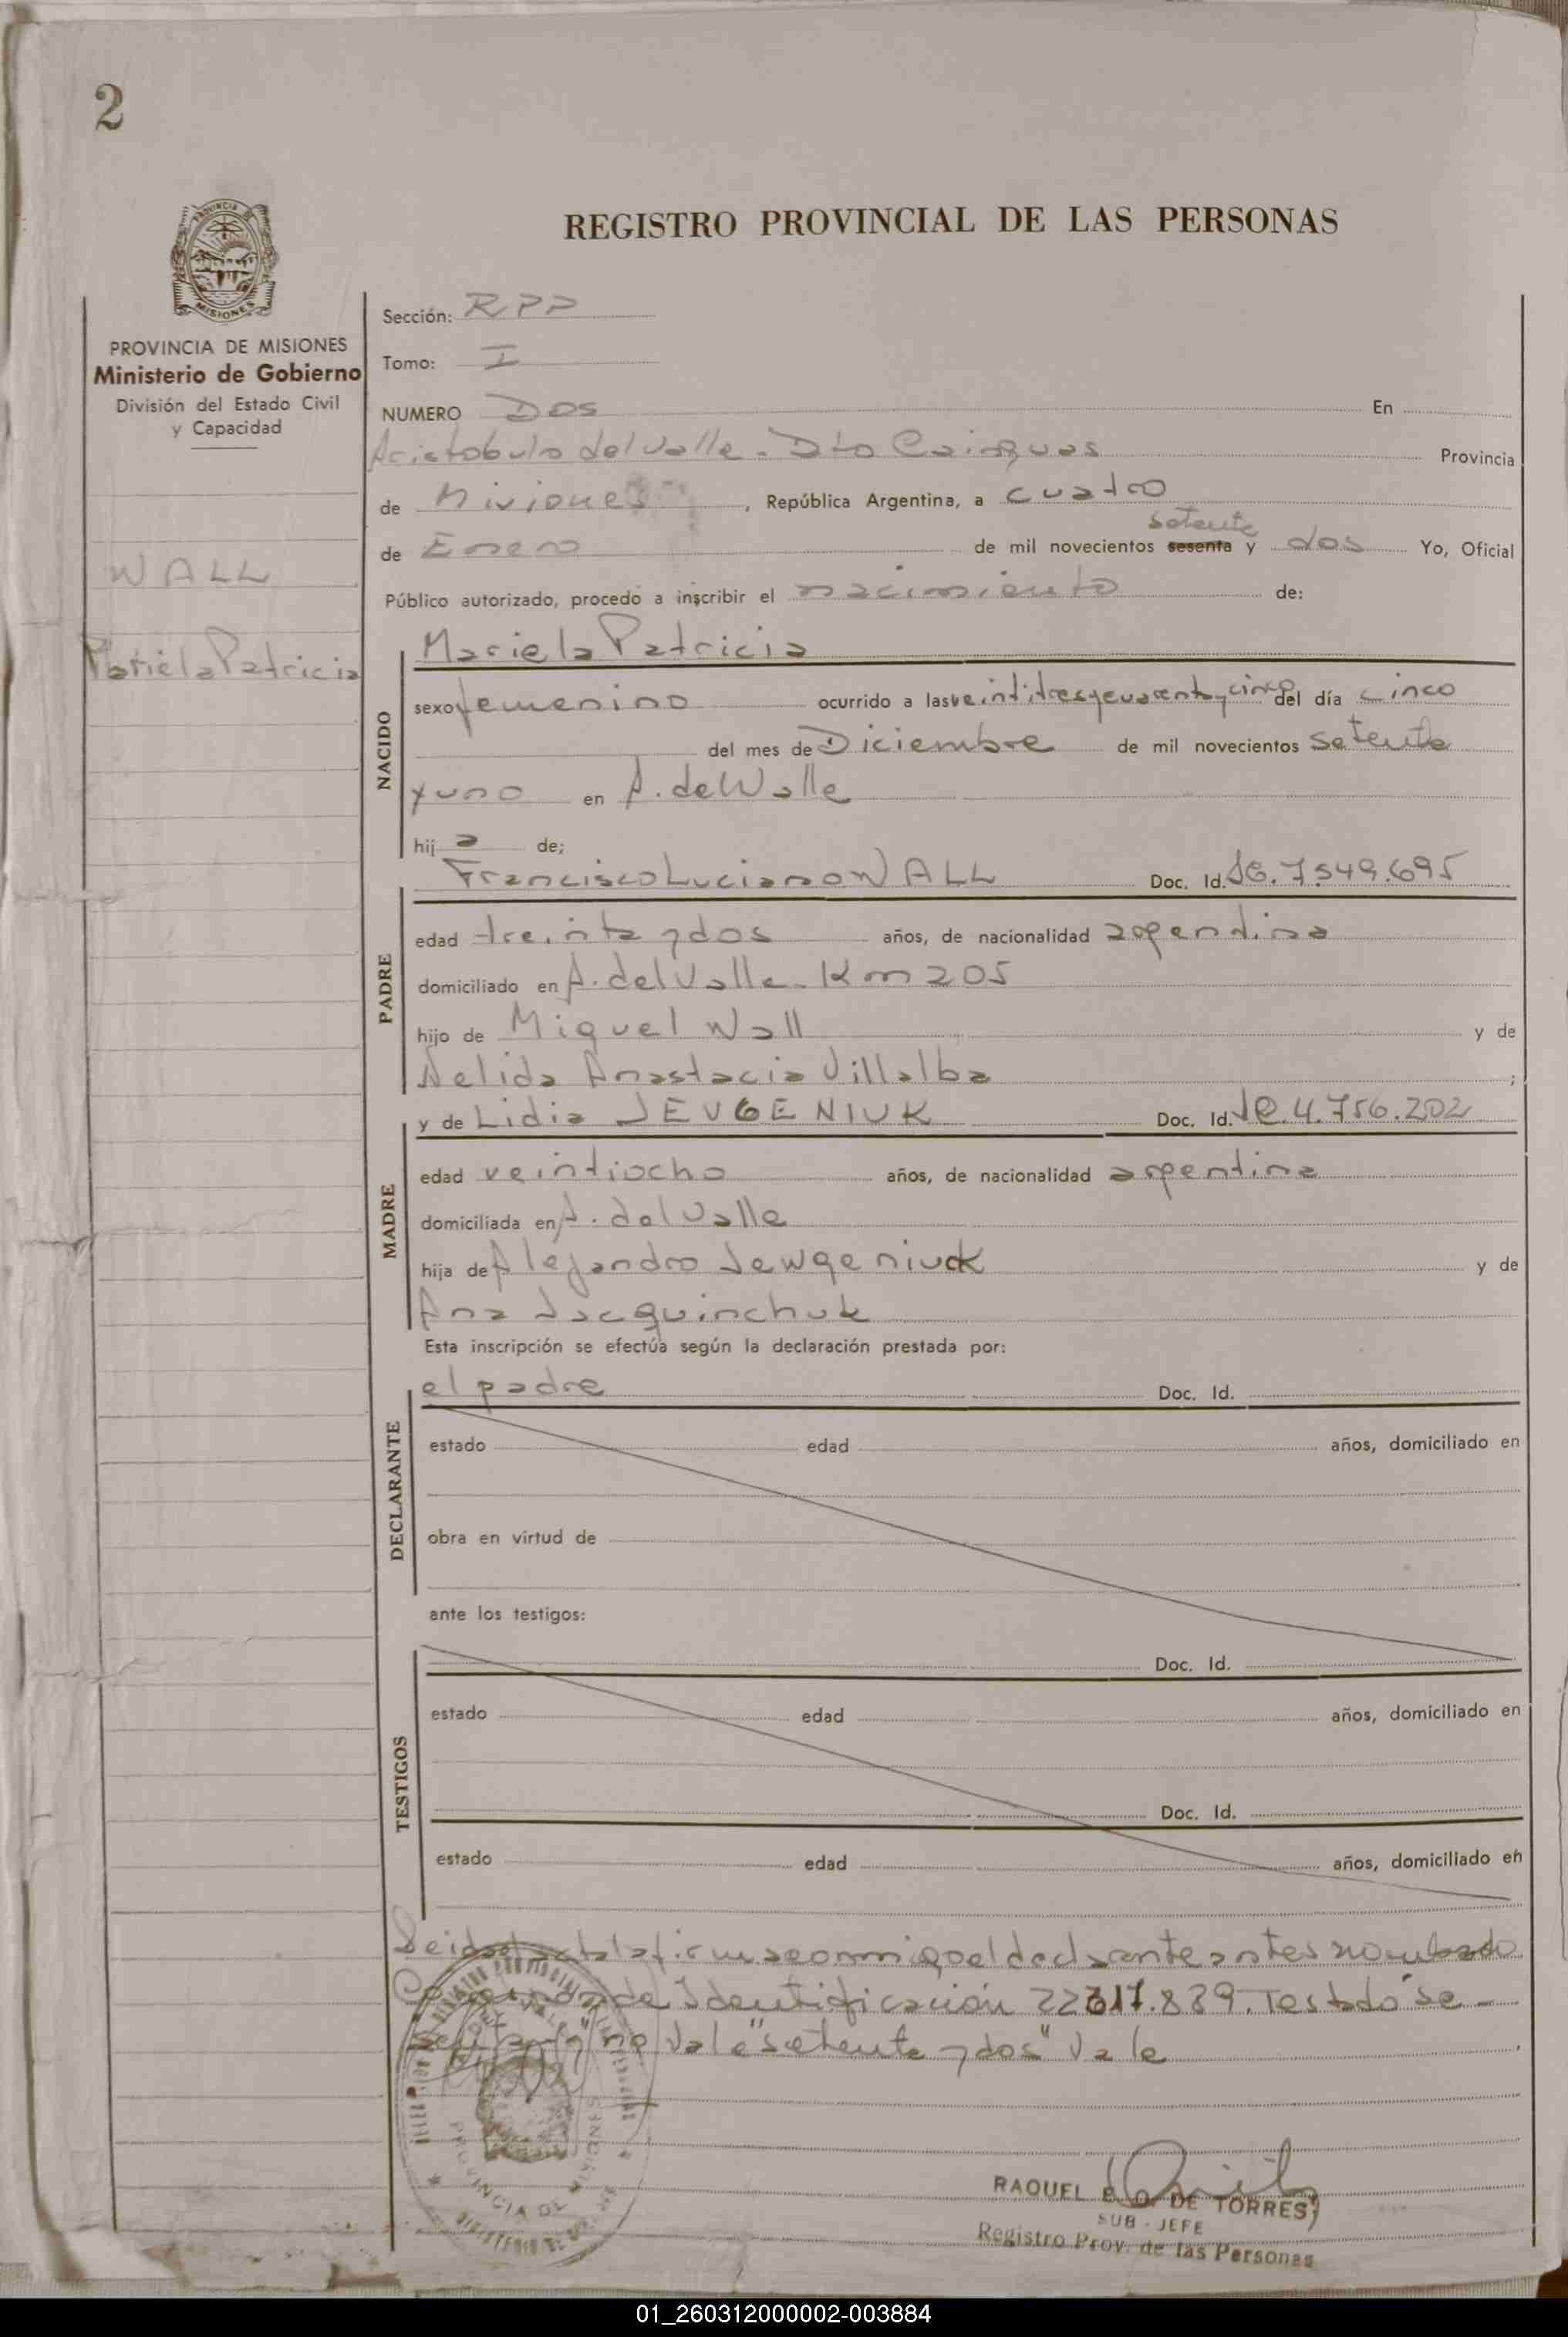 2
PROVINCIA DE MISIONES
Ministerio de Gobierno
División del Estado Civil
y Capacidad
WALL
Mariela Patricia
REGISTRO PROVINCIAL DE LAS PERSONAS
Sección: RPP
Tomo: I
NUMERO Dos En
Aristobulo del Valle - Dto Cainguas Provincia
de Misiones, República Argentina, a cuatro
setenta
de Enero de mil novecientos sesenta y dos Yo, Oficial
Público autorizado, procedo a inscribir el nacimiento de:
NACIDO
Mariela Patricia
sexo femenino ocurrido a las veintitres y cuarenta y cinco del día cinco
del mes de Diciembre de mil novecientos setenta
y uno en A. del Valle
hij a de;
PADRE
Francisco Luciano WALL Doc. Id. 7.549.695
edad treinta y dos años, de nacionalidad argentina
domiciliado en A. del Valle - Km 205
hijo de Miguel Wall y de
Nelida Anastacia Villalba ;
MADRE
y de Lidia JEVGENIUK Doc. Id. 4.756.202
edad veintiocho años, de nacionalidad argentina
domiciliada en A. del Valle
hija de Alejandro Jewgeniuck y de
Ana Jacquinchuk
Esta inscripción se efectúa según la declaración prestada por:
DECLARANTE
el padre Doc. Id.
estado edad años, domiciliado en
obra en virtud de
ante los testigos:
TESTIGOS
Doc. Id.
estado edad años, domiciliado en
Doc. Id.
estado edad años, domiciliado en
Leida acta la firma conmigo el declarante antes nombrado
de Identificación 22617.839. Testado "se-
no vale "setenta y dos" Vale
PROVINCIA DE MISIONES
RAQUEL E. O. DE TORRES
SUB - JEFE
Registro Prov. de las Personas
01_260312000002-003884